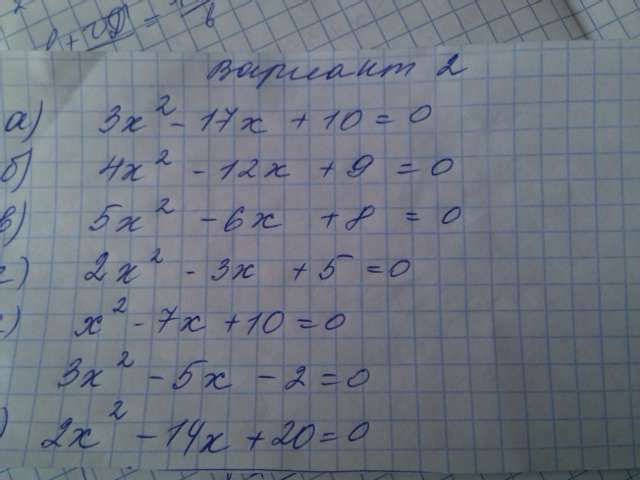 Вариант 2
а) 3x² - 17x + 10 = 0
б) 4x² - 12x + 9 = 0
в) 5x² - 6x + 8 = 0
г) 2x² - 3x + 5 = 0
x² - 7x + 10 = 0
3x² - 5x - 2 = 0
) 2x² - 14x + 20 = 0